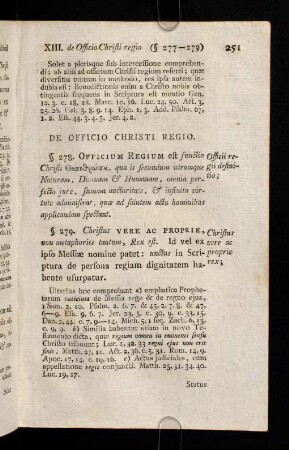 XIII. de Officio Christi regio (§ 277—279) 251
Solet a plerisque sub intercessione comprehen-
di; ab aliis ad officium Christi regium referri; quæ
diversitas tantum in methodo, res ipsa autem in-
dubia est: Benedictionis enim a Christo nobis ob-
tingentis frequens in Scriptura est mentio Gen.
12, 3. c. 18, 18. Marc. 10, 16. Luc. 24, 50. Act. 3,
25. 26. Gal. 3, 8. 9. 14. Eph. 1, 3. Add. Psalm. 67,
1. 2. Esa. 44, 3. 4. 5. Jer. 4, 2.
DE OFFICIO CHRISTI REGIO.
§ 278. OFFICIUM REGIUM est functio
Christi Θεανθρώπου, qua is secundum utramque
Naturam, Divinam & Humanam, omnia per-
fecto jure, summa auctoritate, & infinita vir-
tute administrat, quæ ad salutem actu hominibus
applicandam spectant.
Officii re-
gii defini-
tio;
§ 279. Christus VERE AC PROPRIE,
non metaphorice tantum, Rex est. Id vel ex
ipso Messiæ nomine patet: unctus in Scri-
ptura de persona regiam dignitatem ha-
bente usurpatur.
Christus
vere ac
proprie
rex;
Ulterius hoc comprobant a) emphatica Prophe-
tarum vaticinia de Messia rege & de regno ejus,
1 Sam. 2, 10. Psalm. 2, 6. 7. & 45. 2. 7. 8. & 47,
6—9. Esa. 9, 6. 7. Jer. 23, 5. c. 30, 9. c. 33, 15.
Dan. 2, 44. c. 7, 9—14. Mich. 5, 1 seq. Zach. 6, 13.
c. 9, 9. b) Similia habentur etiam in novo Te-
stamento dicta, quæ regnum omnia in eminenti sensu
Christo tribuunt; Luc. 1, 32. 33 regni ejus non erit
finis; Matth. 27, 11. Act. 2, 36. c. 5, 31. Rom. 14, 9.
Apoc. 17, 14. c. 19, 16. c) Actus judiciales, cum
appellatione regis conjuncti. Matth. 25, 31. 34. 40.
Luc. 19, 27.
Status